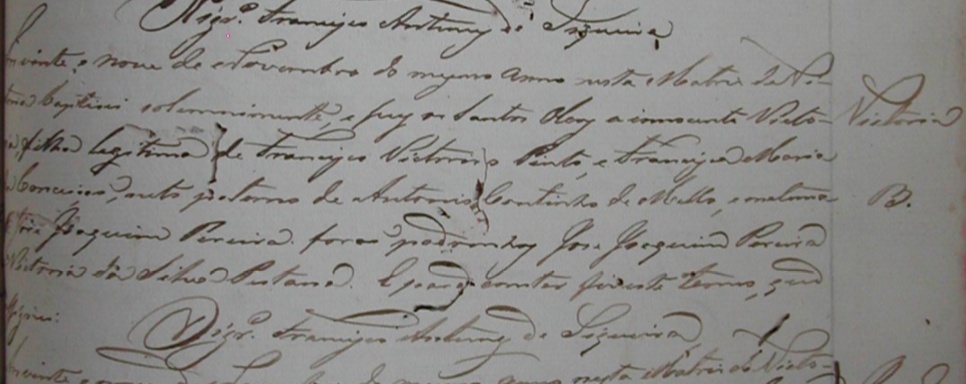 Vigr.º Francisco Antunes de Siqueira
vinte e nove de Novembro do mesmo anno nesta Matriz da Vi-
baptisei solemnemente, e puz os Santos Oleos a innocente Victo-
Victoria
filha legitima de Francisco Victorino Pinto, e Francisca Maria
Conceição, neto paterno de Antonio Coutinho de Mello, e materna
B.
Joaquim Pereira. foraõ padrinhos José Joaquim Pereira
Victoria da Silva Pestana. E para constar fiz este termo, que
assignei:
Vigr.º Francisco Antunes de Siqueira
vinte e nove de mesmo anno nesta Matriz da Victo-